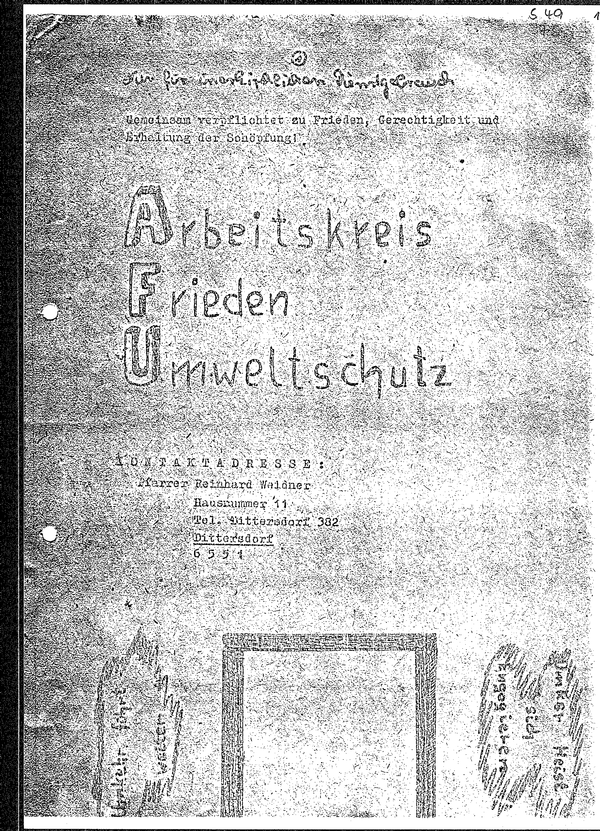 S 49
1
Nur für innerkirchlichen Dienstgebrauch
Gemeinsam verpflichtet zu Frieden, Gerechtigkeit und
Erhaltung der Schöpfung!
Arbeitskreis
Frieden
Umweltschutz
KONTAKTADRESSE:
Pfarrer Reinhard Weidner
Hausnummer 11
Tel. Dittersdorf 382
Dittersdorf
6551
Umkehr führt
weiter
Umkehr heißt
sich
engagieren